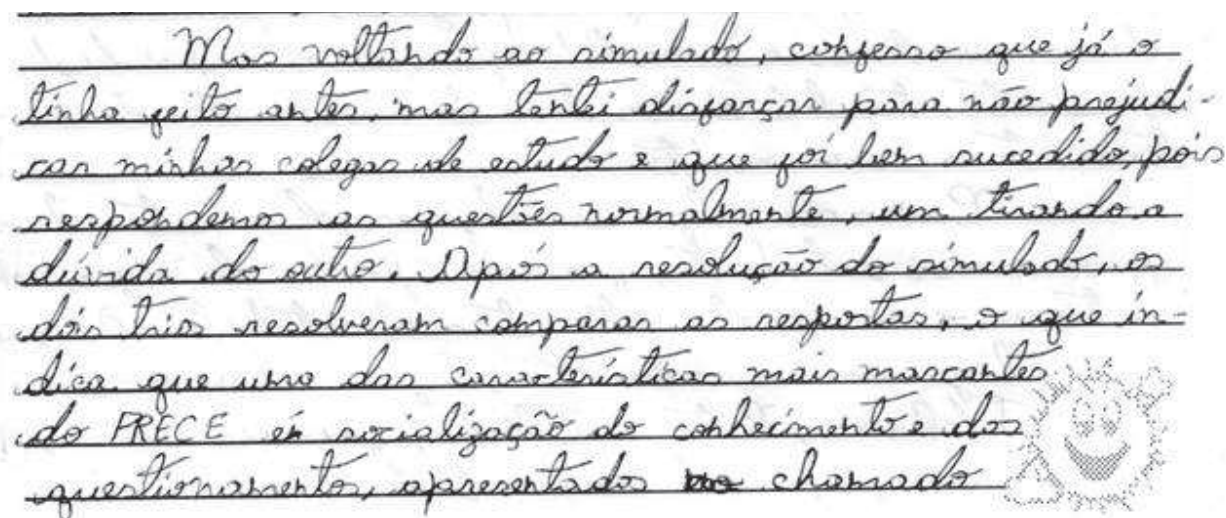 Mas voltando ao simulado, confesso que já o
tinha feito antes, mas tentei disfarçar para não prejudi-
car minhas colegas de estudo e que foi bem sucedido, pois
respondemos as questões normalmente, um tirando a
dúvida do outro. Após a resolução do simulado, os
dois trios resolveram comparar as respostas, o que in-
dica que uma das características mais marcantes
do PRECE é a socialização do conhecimento e dos
questionamentos, apresentados no chamado